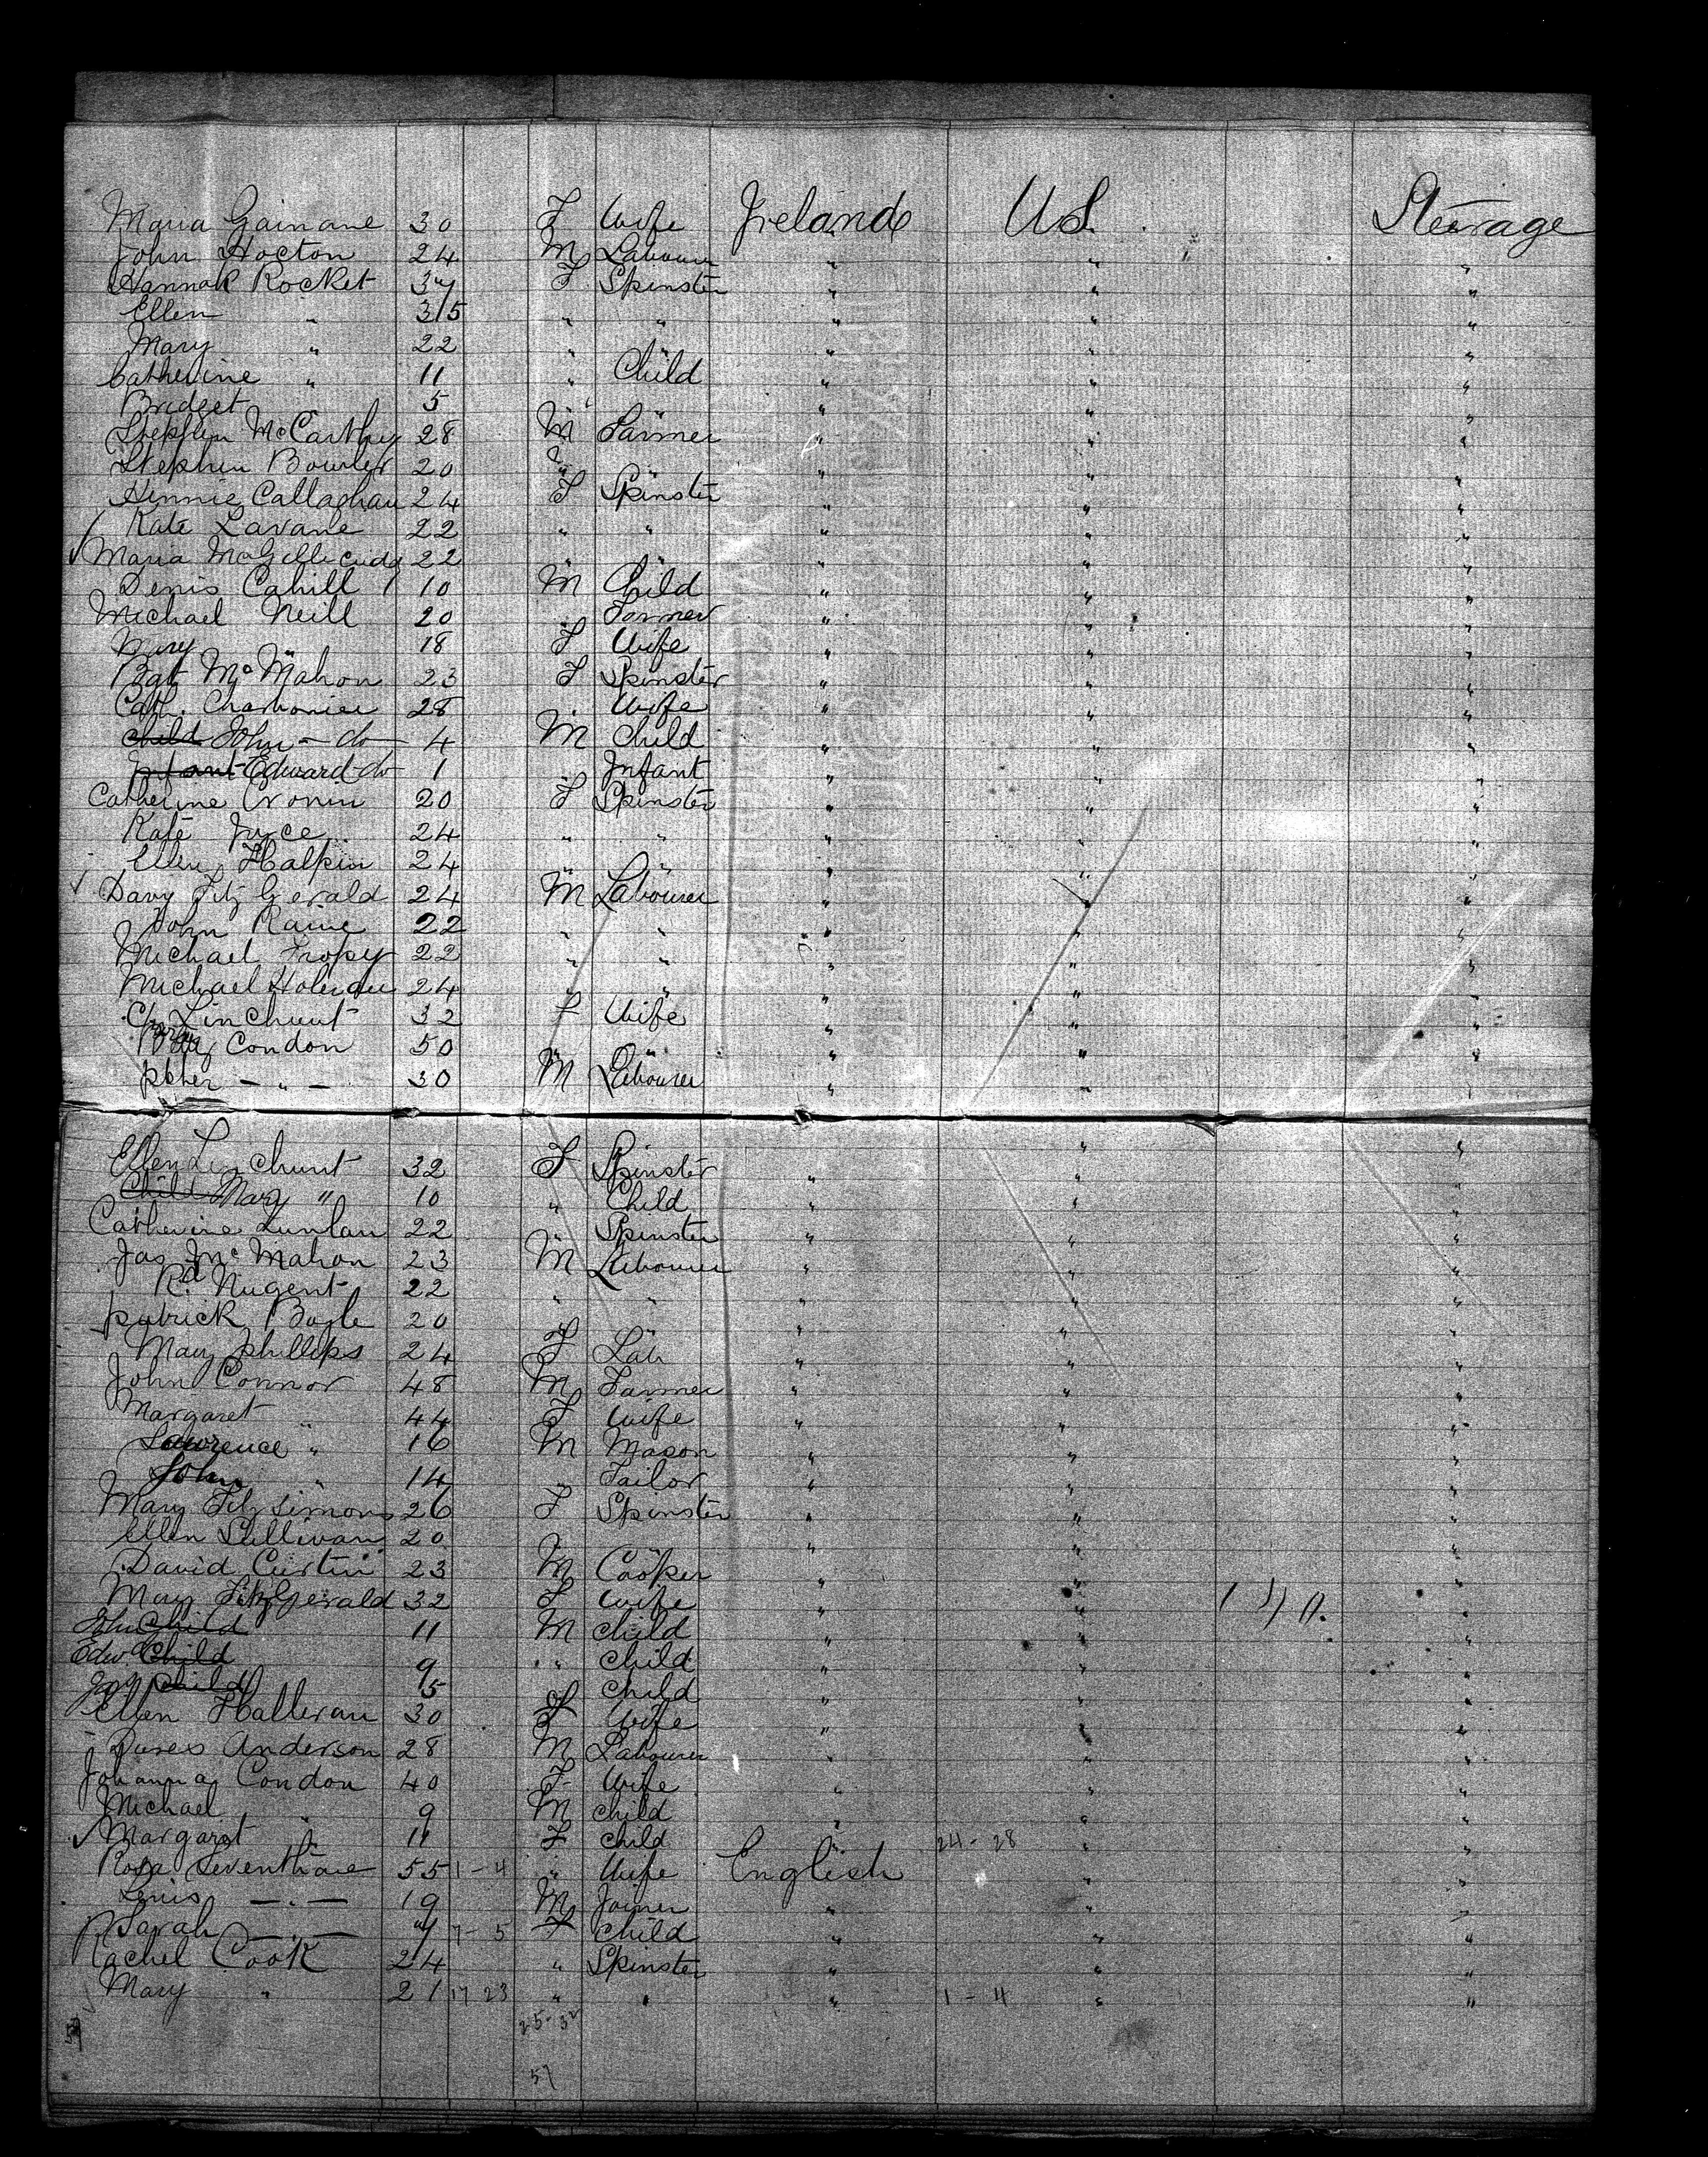 Maria Gainane 30 F Wife Ireland U.S. Steerage
John Hocton 24 M Labourer " " "
Hannah Rocket 34 F Spinster " " "
Ellen " 35 " " " " "
Mary " 22 " " " " "
Catherine " 11 " Child " " "
Bridget " 5 " " " " "
Stephen McCarthy 28 M Farmer " " "
Stephen Bowler 20 " " " " "
Hennie Callaghan 24 F Spinster " " "
Kate Lavane 22 " " " " "
Maria McGillicudy 22 " " " " "
Denis Cahill 10 M Child " " "
Michael Neill 20 " Farmer " " "
Mary " 18 F Wife " " "
Bgt McMahon 23 F Spinster " " "
Cath. Charbonier 28 " Wife " " "
child John - do - 4 M Child " " "
Infant Edward do 1 " Infant " " "
Catherine Cronin 20 F Spinster " " "
Kate Joyce 24 " " " " "
Ellen Halpin 24 " " " " "
Davy Fitz Gerald 24 M Labourer " " "
John Raine 22 " " " " "
Michael Tropy 22 " " " " "
Michael 24 " " " " "
Linchunt 32 F Wife " " "
Mary Condon 50 " " " " "
peter - " - 30 M Labourer " " "
Ellen Linchunt 32 F Spinster " " "
Child Mary " 10 " Child " " "
Catherine 22 " Spinster " " "
Jas McMahon 23 M Labourer " " "
Rd. Nugent 22 " " " " "
patrick Boyle 20 " " " " "
Mary phillips 24 F Lab " " "
John Connor 48 M Farmer " " "
Margaret " 44 F Wife " " "
Lawrence " 16 M Mason " " "
John " 14 " Tailor " " "
Mary Fitzsimons 26 F Spinster " " "
Ellen Sullivan 20 " " " " "
David Curtin 23 M Cooper " " "
Mary FitzGerald 32 F Wife " " "
John Child 11 M child " " "
Edwd Child 9 " child " " "
child 5 F child " " "
Ellen Halleran 30 F Wife " " "
Anderson 28 M Labourer " " "
Johanna Condon 40 F Wife " " "
Michael " 9 M child " " "
Margaret " 11 F child " 24-28 " "
Rosa Leventhale 55 1-4 " Wife English " "
Lewis - " - 19 M Joiner " " "
Sarah - " - 4 7-5 F child " " "
Rachel Cook 24 " Spinster " " "
Mary " 21 17 23 " " " 1-4 " "
25-32
57